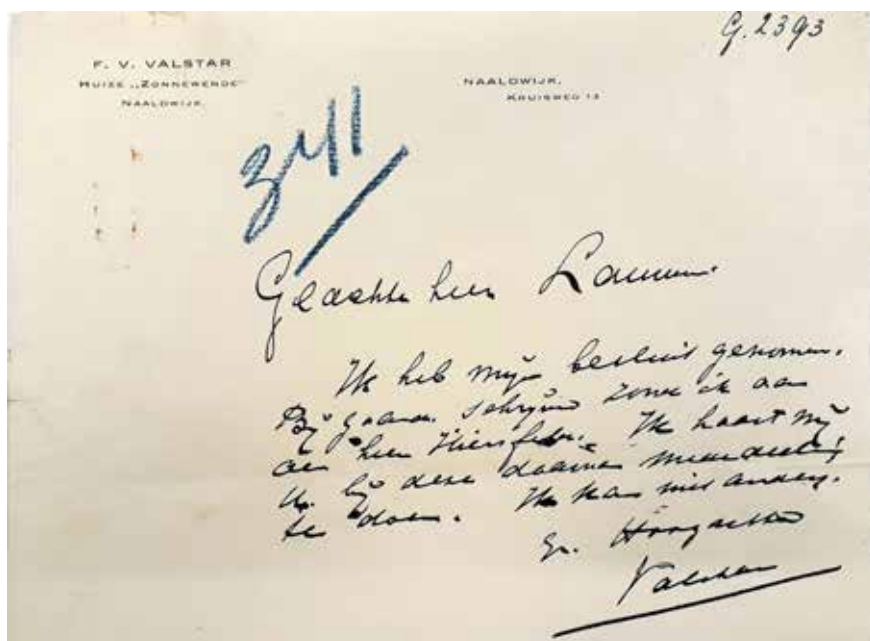 G.2393
F. V. VALSTAR
HUIZE „ZONNEWENDE"
NAALDWIJK.
NAALDWIJK,
KRUISWEG 13
Geachte heer
Ik heb mijn besluit genomen.
Bijgaand schrijven zond ik aan
den heer Hirschfeld. Ik haast mij
U bij deze daarvan mededeeling
te doen. Ik kan niet anders.
Hoogachtend
Valstar